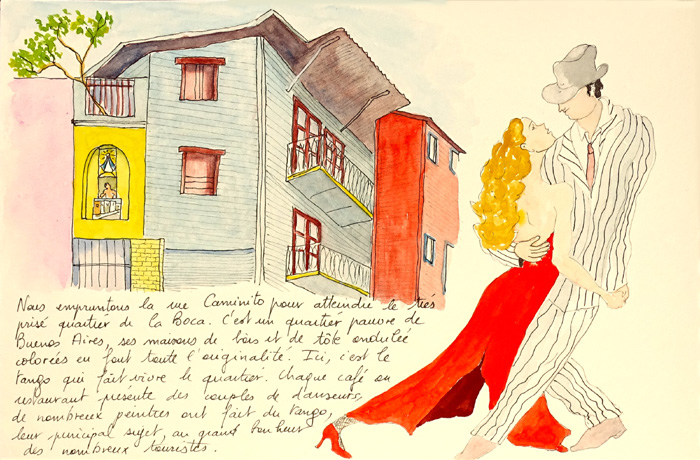 Nous empruntons la rue Caminito pour atteindre le très
prisé quartier de la Boca. C'est un quartier pauvre de
Buenos Aires, ses maisons de bois et de tôle ondulée
colorées en font toute l'originalité. Ici, c'est le
tango qui fait vivre le quartier. Chaque café ou
restaurant présente des couples de danseurs,
de nombreux peintres ont fait du tango,
leur principal sujet, au grand bonheur
des nombreux touristes.